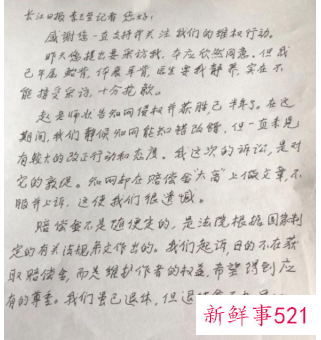 长江日报李卫记者 您好!
感谢您一直支持并关注我们的维权行动。
昨天您提出要采访我,本应欣然同意。但我
已年届,医生要我静养,实在不
能接受采访,十分抱歉。
赵老师状告知网侵权并获胜,已半年了。在这
期间,我们静候知网能知错改错,但一直未见
有较大的改正行动和态度。我这次的诉讼,是对
它的敦促。知网却在赔偿金“太高”上做文章,不
服并上诉,这使我们很遗憾。
赔偿金不是随便定的,是法院根据国家制
定的有关法规条文作出的。我们起诉,目的不在获
取赔偿金,而是维护作者的权益,希望得到应
有的尊重。我们虽已退休,但退
新鲜事521